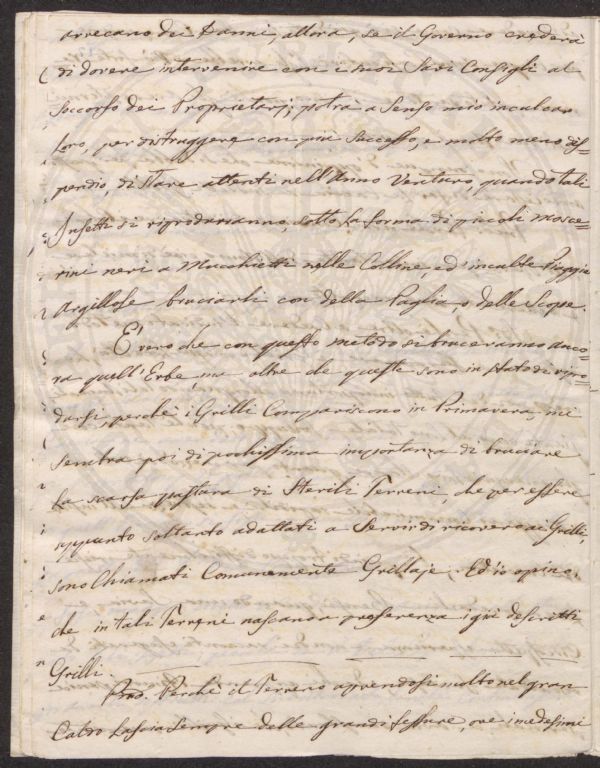 arrecano dei Danni, allora, se il Governo crederà
di dovere intervenire con i suoi Savi Consigli al
Soccorso dei Proprietarj; potrà a Senso mio inculcar
Loro, per distruggere con più Successo, e molto meno dis=
pendio, di stare attenti nell'Anno Venturo, quando tali
Insetti si riprodurranno, sotto la forma di piccoli mosce=
rini neri a Mucchietti nelle Colline, ed incolte Piaggie
Argillose bruciarli con della Paglia, o delle Scope.
È vero che con questo metodo si bruceranno anco=
ra quell'Erbe, ma oltre che queste sono in stato di ripro=
dursi, perchè i Grilli Compariscono in Primavera, mi
sembra poi di pochissima importanza di bruciare
la scarsa pastura di Sterili Terreni, che per essere
appunto soltanto adattati a Servir di ricovero ai Grilli,
sono Chiamati Comunemente Grillaje. Ed io opino,
che in tali Terreni nascano a preferenza i già descritti
Grilli.
Pmo. Perchè il Terreno aprendosi molto nel gran
Caldo Lascia Sempre delle grandi fessure, ove i medesimi